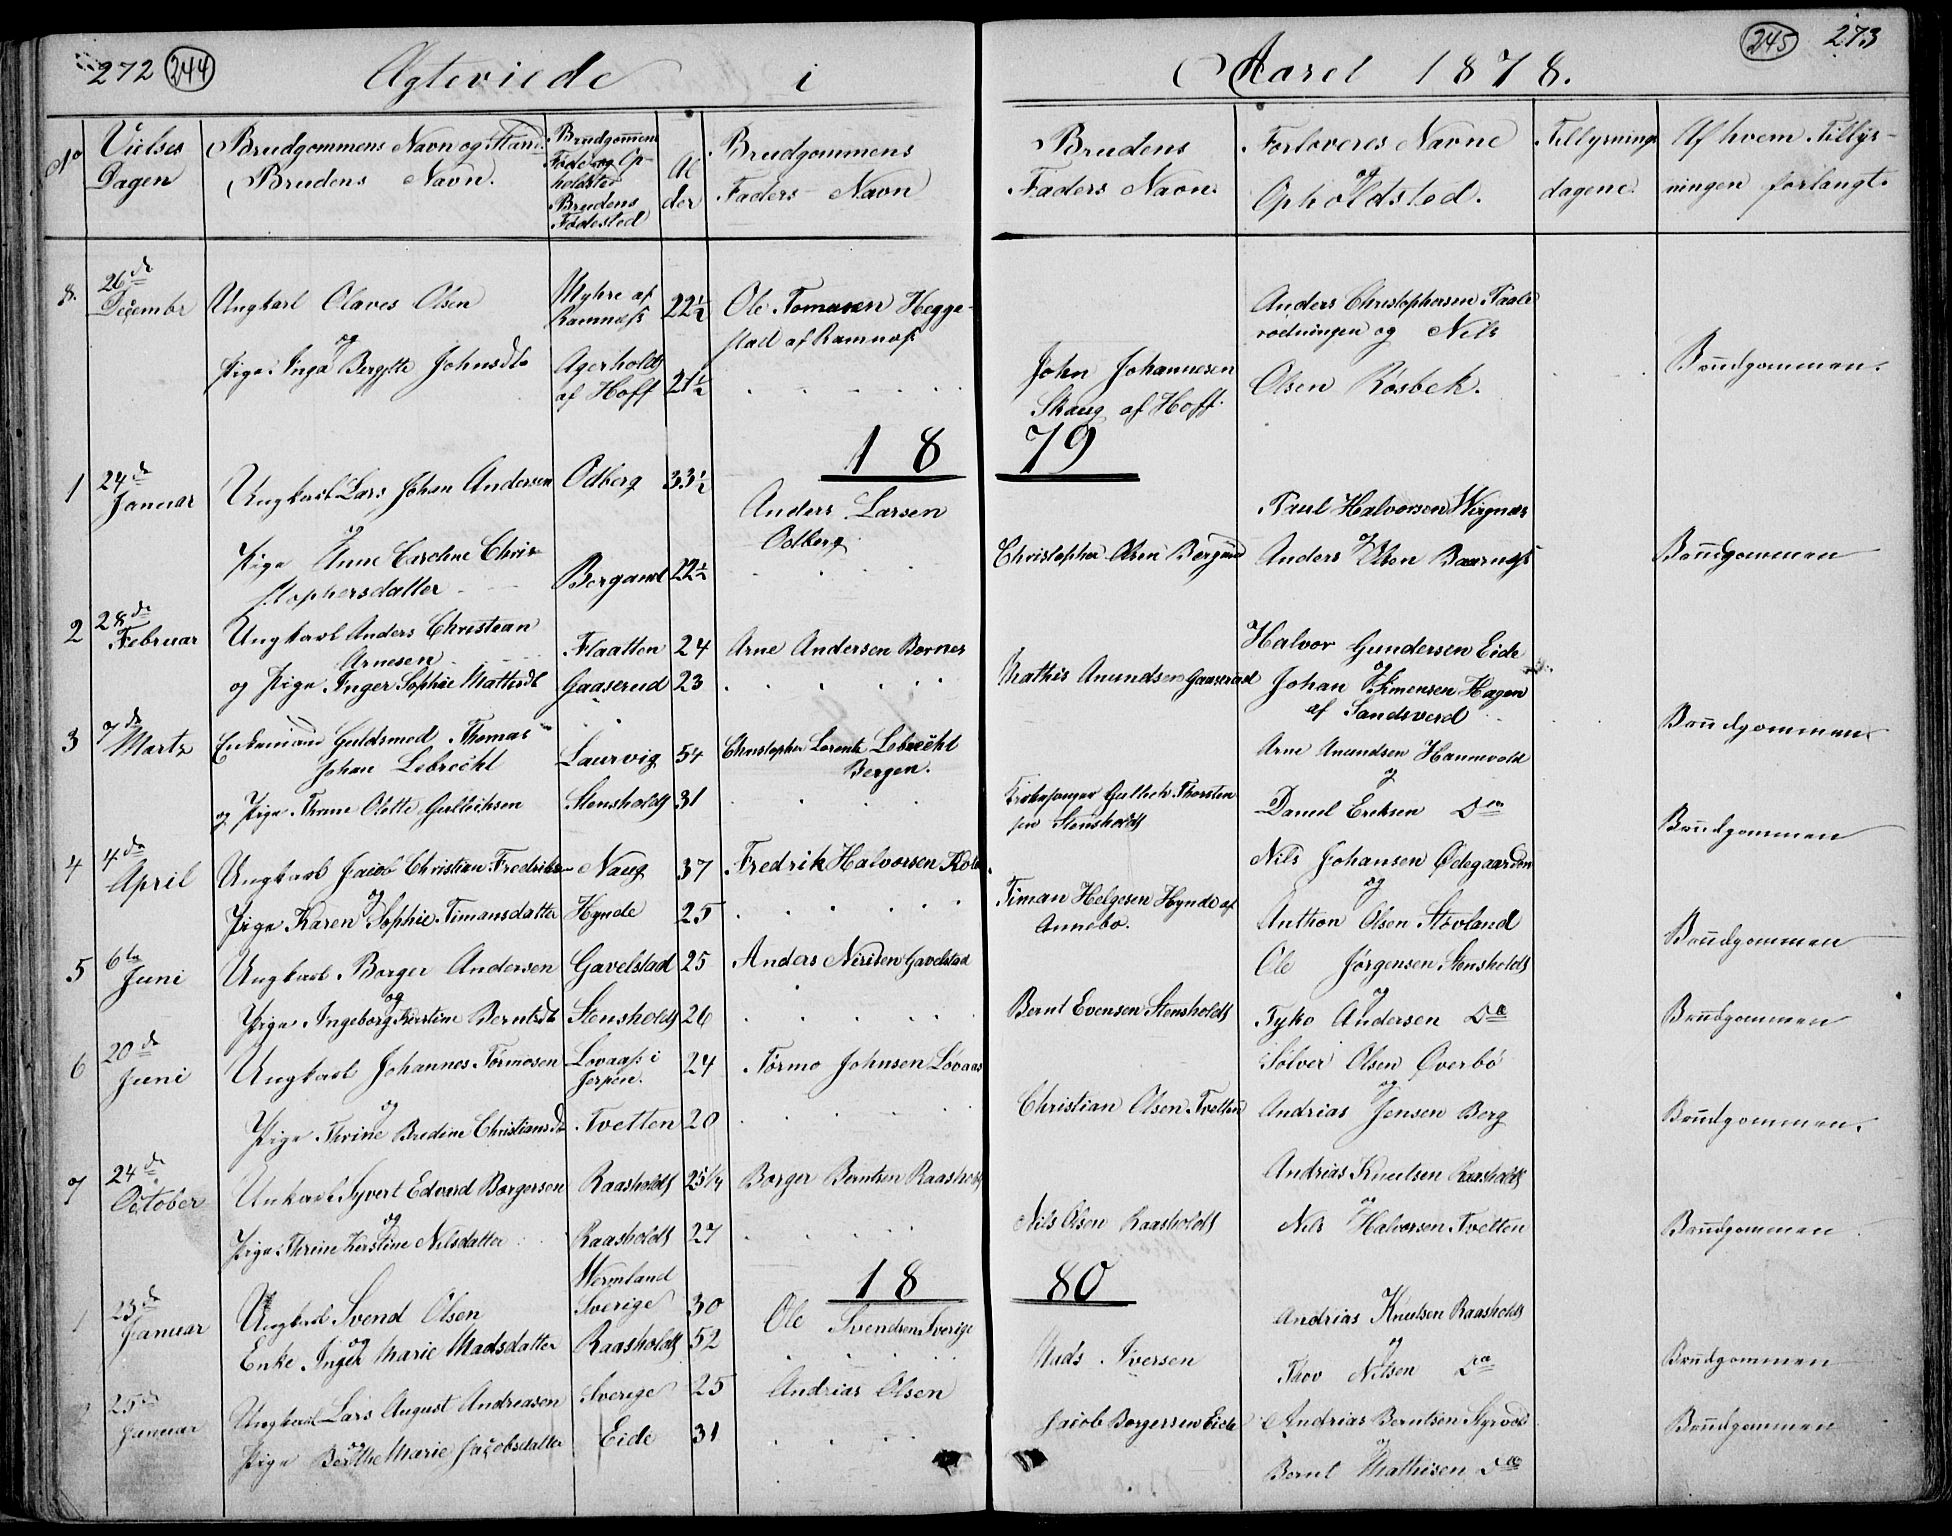 272 244
Ægteviede i
Aaret 1878.
245 273
No
Vielses Dagen
Brudgommens Navn og Stand.
Brudens Navn.
Brudgommens Føde og Opholdsted
Brudens Fødested
Alder
Brudgommens Faders Navn
Brudens Faders Navn.
Forloveres Navne og Opholdsted.
Tillysnings dagene.
Af hvem Tillysningen forlangt.
8. 26de December Ungkarl Olaves Olsen Myhre af Ramnæss 22½ Ole Tomasen Heggestad af Ramnæs
Anders Christophersen Raale
rødningen og Nils
Olsen Røsbek.
og
Pige Inga Bergitte Johnsdtr Agerholdt af Hoff 21½ . . . . . John Johannesen Skaug af Hoff. Brudgommen.
1879
1 24de Januar Ungkarl Lars Johan Andersen Odberg 33½ Anders Larsen Odberg
Paul Halvorsen Vergnæs
og
Pige Anne Caroline Christophersdatter Bergan 22½ . . . . Christopher Olsen Bergan Anders Olsen Baarnæs Brudgommen
2 28de Februar Ungkarl Anders Christian Arnesen Flaatten 24 Arne Andersen Bornes
Halvor Gundersen Eide
og Pige Inger Sophie Mattisdt Gaaserud 23 . . . . . Mathis Anundsen Gaaserud
og
Johan Simensen Hagen af Sandsverd Brudgommen
3 7de Martz Enkemand Guldsmed Thomas Johan Lebrecht Laurvig 54 Christopher Lorentz Lebrecht Bergen.
Arne Anundsen Hannevold
og
og Pige Thrine Olette Gulliksen Stensholdt 31 . . . . Kirkesanger Gullick Thorstensen Stensholdt Daniel Eriksen Do Brudgommen
4 4de April Ungkarl Jacob Christian Fredriksen Naug 37 Fredrik Halvorsen
Nils Johansen Ødegaarden
og
Pige Karen Sophie Timansdatter Hynde 25 . . . . . Timan Helgesen Hynde af Annebo.
og
Anthon Olsen Støvland Brudgommen
5 6te Juni Ungkarl Borger Andersen Gavelstad 25 Anders Nirisen Gavelstad
Ole Jørgensen Stensholdt
og
Pige Ingeborg Kirstine Berntsdt Stensholdt 26 . . . . . Bernt Evensen Stensholdt
og
Tyko Andersen Do Brudgommen
6 20de Juni Ungkarl Johannes Tormosen Lovaass i Jerpen. 24 Tørmo Johnsen Lovaas
Sølver Olsen Øverbø
og
Pige Thrine Bredine Christiansdt Tvetten 20 . . . . . Christian Olsen Tvetten
og
Andrias Jensen Berg Brudgommen.
7 24de October Unkarl Syvert Edvard Borgersen Raasholdt 25¼ Borger Berntsen Raasholdt
Andrias Knutsen Raasholdt
og
Pige Thrine Kirstine Nilsdatter Raasholdt 27 . . . . Nils Olsen Raasholdt
og
Nils Halvorsen Tvetten Brudgommen
1880
1 23de Januar Ungkarl Svend Olsen Wermland Sverige 30 Ole Svendsen Sverige
Andrias Knutsen Raasholdt
og
Enke Inger Marie Madsdatter Raasholdt 52 . . . . . Mads Iversen
og
Thov Nilsen Do Brudgommen
2 25de Januar Ungkarl Lars August Andreasen Sverige 25 Andrias Olsen
Andrias Berntsen Styrvold
og
Pige Berthe Marie Jacobsdatter Eide 31 . . . . Jacob Borgersen Eide
og
Bernt Mathisen Do Brudgommen